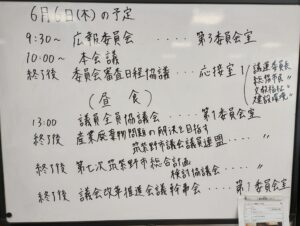 6月6日(木)の予定
9:30~ 広報委員会 ····· 第3委員会室
10:00~ 本会議
終了後 委員会審査日程協議 ···· 応接室1
議運委員長
総務市民 〃
文教福祉 〃
建設環境 〃
(昼食)
13:00 議員全員協議会 ···· 第1委員会室
終了後 産業廃棄物問題の解決を目指す
筑紫野市議会議員連盟 ····· 〃
終了後 第七次筑紫野市総合計画
検討協議会 ···· 〃
終了後 議会改革推進会議幹事会 ···· 第1委員会室